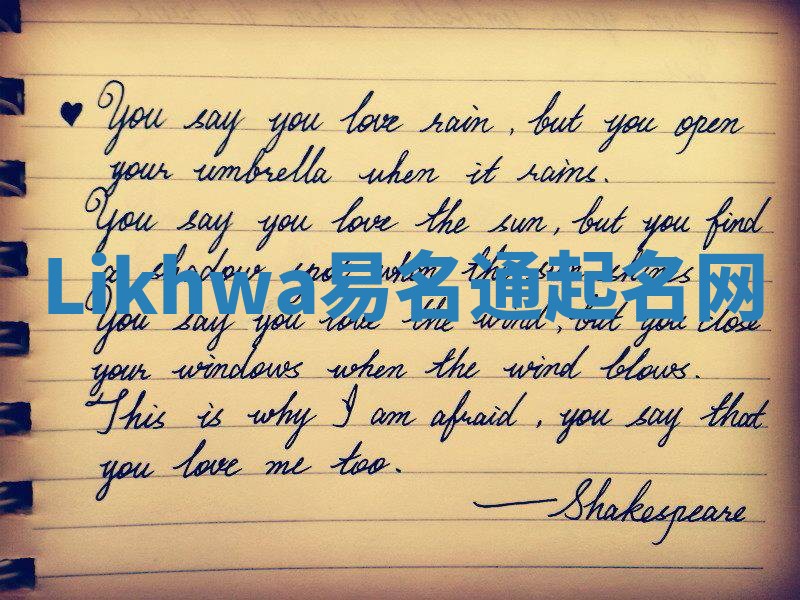 You say you love rain, but you open
your umbrella when it rains.
You say you love the sun, but you find
a shadow spot when the sun shines
Likhwa易名通起名网
You say you love the wind, but you close
your windows when the wind blows.
This is why I am afraid, you say that
you love me too.
—Shakespeare